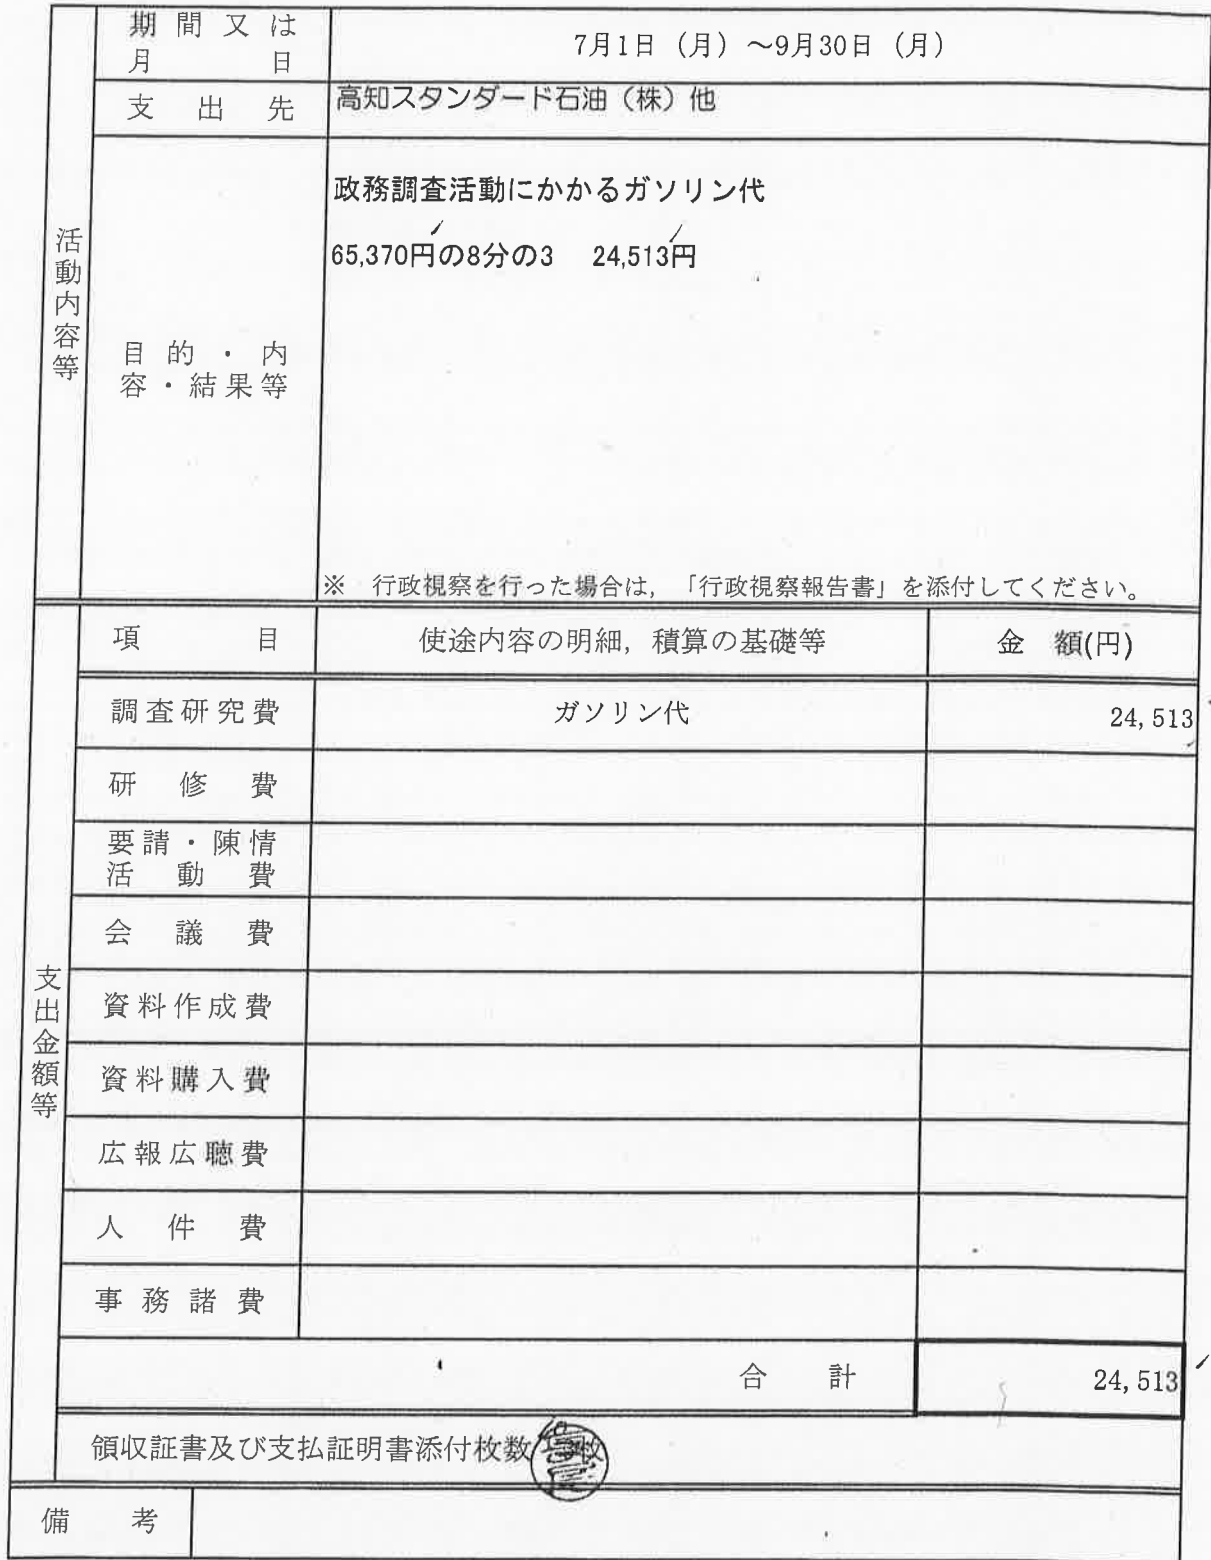 活動内容等
期間又は
月日
7月1日（月）～9月30日（月）
支出先
高知スタンダード石油（株）他
目的・内
容・結果等
政務調査活動にかかるガソリン代
65,370円の8分の3　24,513円
※　行政視察を行った場合は，「行政視察報告書」を添付してください。
支出金額等
項目
使途内容の明細，積算の基礎等
金　額(円)
調査研究費
ガソリン代
24,513
研修費
要請・陳情
活動費
会議費
資料作成費
資料購入費
広報広聴費
人件費
事務諸費
合計
24,513
領収証書及び支払証明書添付枚数
備考